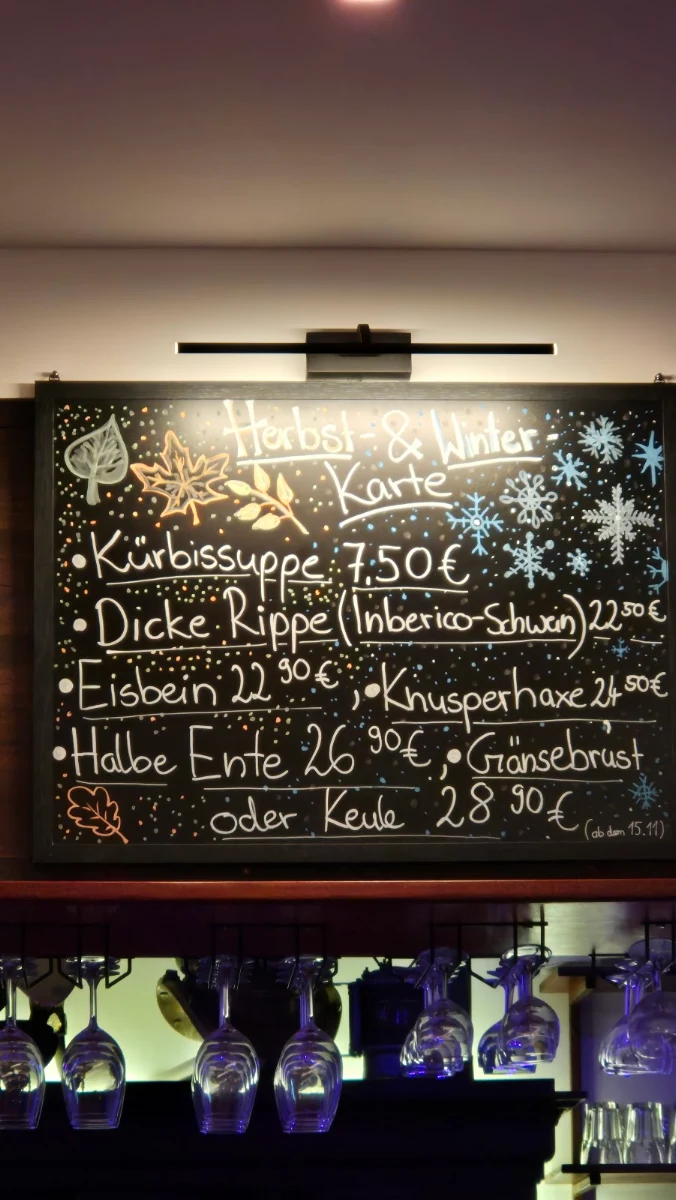 Herbst- & Winter-
Karte
• Kürbissuppe 7,50 €
• Dicke Rippe (Inberico-Schwein) 22 50 €
• Eisbein 22 90 €, • Knusperhaxe 24 50 €
• Halbe Ente 26 90 €, • Gänsebrust
oder Keule 28 90 € (ab dem 15.11)